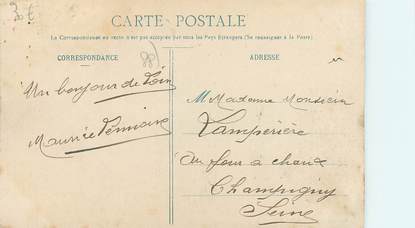 30€
CARTE POSTALE
La Correspondance au recto n'est pas acceptée par tous les Pays Etrangers (Se renseigner à la Poste)
CORRESPONDANCE
ADRESSE
Un bonjour de Loin
Maurice
M Madame Monsieur
Lamperière
Au four a chaux
Champigny
Seine